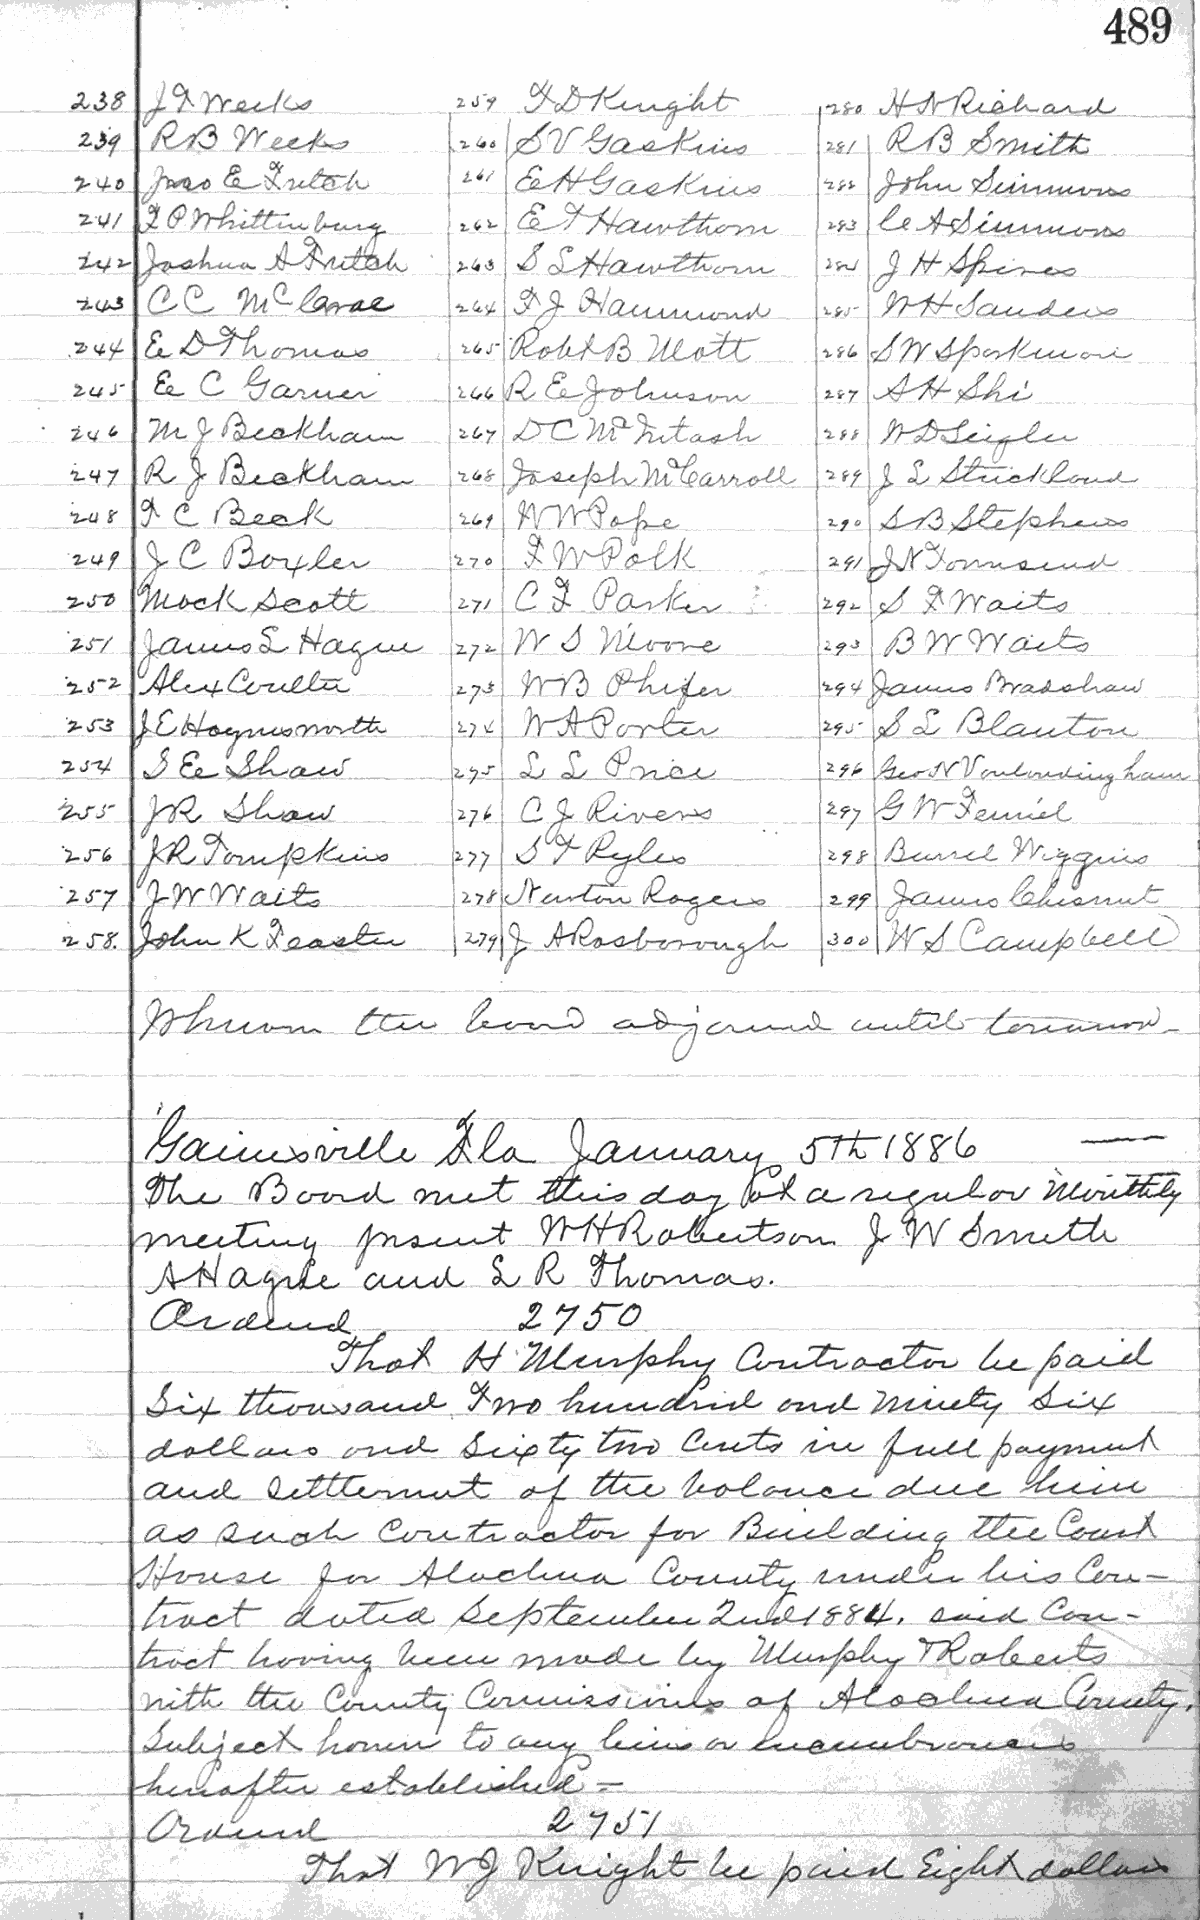 489
238 J F Weeks
239 R B Weeks
240 Jno E Futch
241 F P Whittenburg
242 Joshua A Futch
243 C C McCrae
244 E D Thomas
245 E C Garner
246 M J Beckham
247 R J Beckham
248 F C Beck
249 J C Boxler
250 Mack Scott
251 James L Hague
252 Alex Coulter
253 J E Haynesworth
254 S E Shaw
255 J R Shaw
256 J R Tompkins
257 J W Waits
258. John K Feaster
259 F D Knight
260 S V Gaskins
261 E H Gaskins
262 E F Hawthorn
263 S L Hawthorn
264 F J Hammond
265 Robt B Mott
266 R E Johnson
267 D C McIntash
268 Joseph McCarroll
269 W W Pope
270 F W Polk
271 C F Parker
272 W S Moore
273 W B Phifer
274 W A Porter
275 L L Price
276 C J Rivers
277 S F Ryles
278 Newton Rogers
279 J A Rosborough
280 H N Richard
281 R B Smith
282 John Simmons
283 C A Simmons
284 J H Spires
285 W H Sanders
286 S W Sparkman
287 A H Shi
288 W D Seigler
289 J L Strickland
290 S B Stephens
291 J N Townsend
292 S F Waits
293 B W Waits
294 James Bradshaw
295 S L Blanton
296 Geo N
297 G W Fennel
298 Burrel Wiggins
299 James Chesnut
300 W S Campbell
Whereon the board adjourned until tomorrow
Gainesville Fla January 5th 1886
The Board met this day at a regular Monthly
meeting present W H Robertson J W Smith
A Hague and L R Thomas.
Ordered 2750
That H Murphy Contractor be paid
Six thousand Two hundred and Ninety Six
dollars and Sixty two Cents in full payment
and Settlement of the balance due him
as such Contractor for Building the Court
House for Alachua County under his Con-
tract dated September 2nd 1884. said Con-
tract having been made by Murphy & Roberts
with the County Commissioners of Alachua County.
Subject however to any liens or encumbrances
hereafter established -
Ordered 2751
That W J Knight be paid Eight dollars